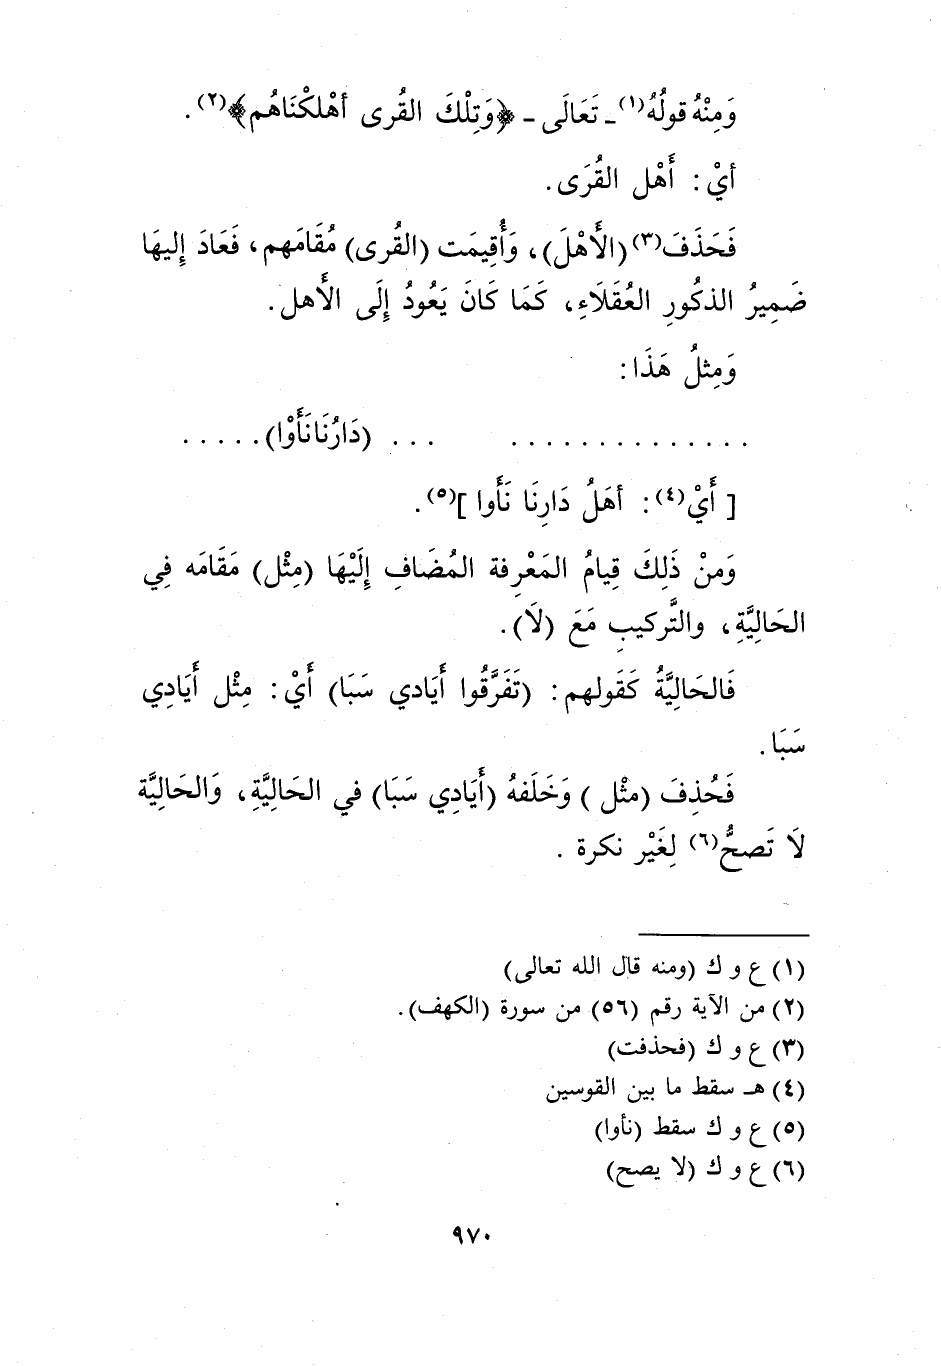 وَمِنْهُ قولُهُ(١) ـ تَعَالَى ـ ﴿وَتِلْكَ القُرى أهْلكْنَاهُم﴾(٢).
أيْ: أَهْل القُرَى.
فَحَذَفَ(٣) (الأَهْلَ)، وَأُقِيمَت (القُرى) مُقَامَهم، فَعَادَ إِليهَا
ضَمِيرُ الذكُورِ العُقَلَاءِ، كَمَا كَانَ يَعُودُ إِلَى الأَهل.
وَمِثلُ هَذَا:
. . . . . . . . . . . . . . . . . (دَارُنَا نَأَوْا) . . . . .
[ أَيْ(٤): أهَلُ دَارِنَا نَأَوا ](٥).
وَمنْ ذَلِكَ قِيامُ المَعْرِفة المُضَافِ إِلَيْهَا (مِثْل) مَقَامَه فِي
الحَالِيَّةِ، والتَّركيبِ مَعَ (لَا).
فَالحَالِيَّةُ كَقَولهم: (تَفَرَّقُوا أَيَادي سَبَا) أَيْ: مِثْل أَيَادِي
سَبَا.
فَحُذِفَ (مثْل ) وَخَلَفهُ (أَيَادِي سَبَا) في الحَالِيَّةِ، وَالحَاليَّة
لاَ تَصحُّ(٦) لِغَيْر نكرة .
(١) ع و ك (ومنه قال الله تعالى)
(٢) من الآية رقم (٥٦) من سورة (الكهف).
(٣) ع و ك (فحذفت)
(٤) هـ سقط ما بين القوسين
(٥) ع و ك سقط (نأوا)
(٦) ع و ك (لا يصح)
٩٧٠